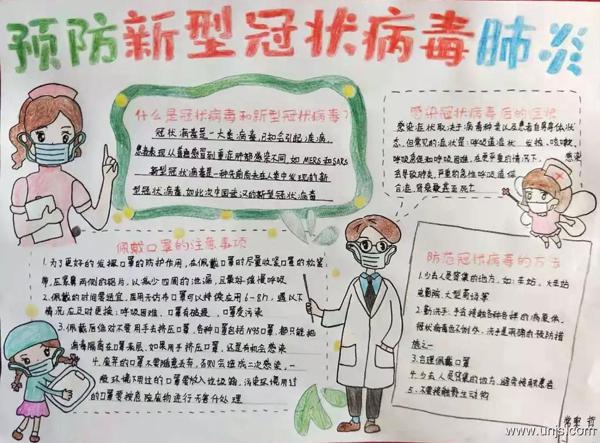 预防新型冠状病毒肺炎
什么是冠状病毒和新型冠状病毒?
冠状病毒是一大类病毒,已知会引起疾病,
患者表现从普通感冒到重症肺部感染不同,如MERS和SARS
新型冠状病毒是一种先前尚未在人类中发现的新
型冠状病毒,如此次中国武汉的新型冠状病毒
感染冠状病毒后的症状
感染症状取决于病毒种类以及患者自身身体状
态,但常见的症状是:呼吸道症状、发烧、咳嗽、
呼吸急促和呼吸困难,在更严重的情况下,感染
会导致肺炎,严重的急性呼吸道综
合症,肾衰竭甚至死亡
佩戴口罩的注意事项
1.为了更好的发挥口罩的防护作用,在佩戴口罩时尽量收紧口罩的松紧
带,压紧鼻两侧的铝片,以减少四周的泄漏,且最好缓慢呼吸
2.佩戴的时间要适宜,医用无纺布口罩可以持续应用6-8h,遇以下
情况应及时更换:呼吸困难、口罩有破损、口罩受污染
3.佩戴后绝对不要用手去挤压口罩,各种口罩包括N95口罩,都只能把
病毒隔离在口罩表层,如果用手挤压口罩,还是有机会感染
4.废弃的口罩不要随意丢弃,否则会造成二次感染,一
般环境下用过的口罩要放入垃圾箱,污染环境用过
的口罩要按危险废物进行无害化处理
防范冠状病毒的方法
1.少去人员密集的地方,如:车站、火车站
电影院、大型商场等
2.勤洗手,手会接触各种各样的病原体,
冠状病毒也不例外,洗手是明确的预防措
施之一
3.合理佩戴口罩
4.少去人员密集的地方,避免接触患者
5.不要接触野生动物
www.unjs.com